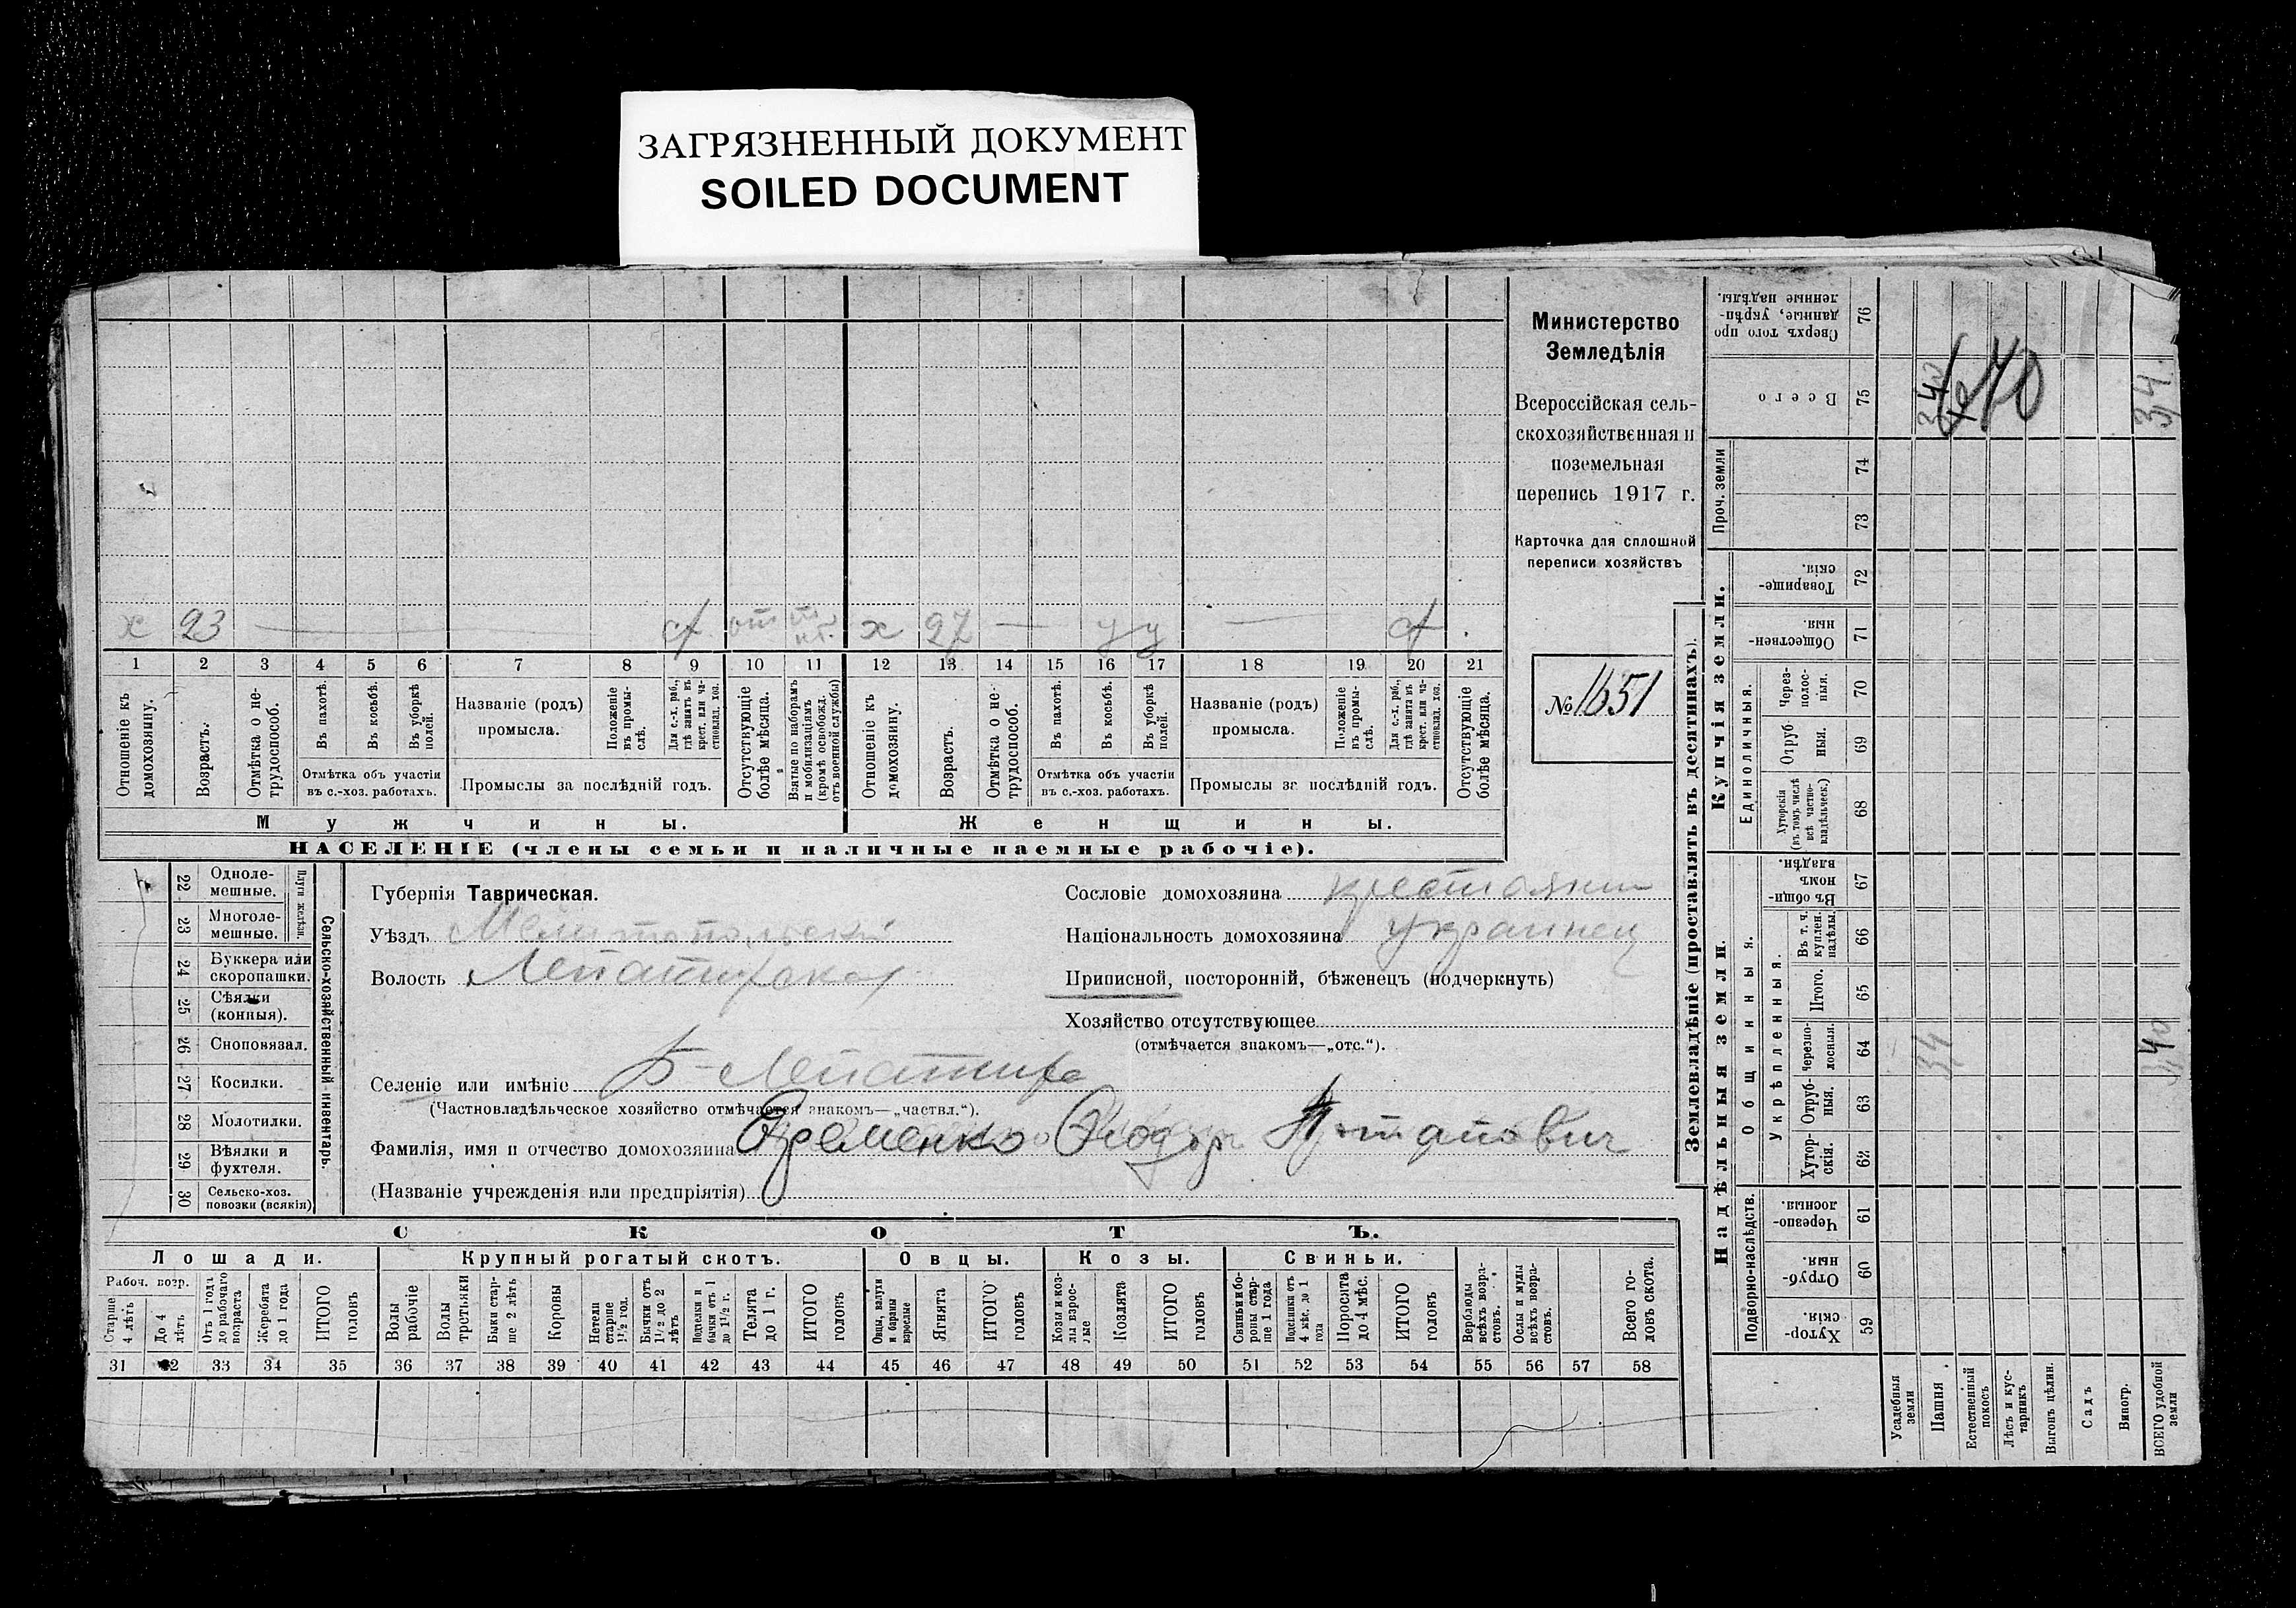 ЗАГРЯЗНЕННЫЙ ДОКУМЕНТ
SOILED DOCUMENT
Министерство
Земледѣлія
Всероссійская сель-
скохозяйственная и
поземельная
перепись 1917 г.
Карточка для сплошной
переписи хозяйствъ
№ 1651
х 23 — х 27 — у у —
1 2 3 4 5 6 7 8 9 10 11 12 13 14 15 16 17 18 19 20 21
Отношеніе къ домохозяину.
Возрастъ.
Отмѣтка о не-трудоспособ.
Въ пахотѣ.
Въ косьбѣ.
Въ уборкѣ полей.
Отмѣтка объ участіи
въ с.-хоз. работахъ.
Названіе (родъ)
промысла.
Положеніе въ промы-слѣ.
Для с.-х. раб., гдѣ занятъ въ крест. или ча-стновлад. хоз.
Промыслы за послѣдній годъ.
Отсутствующіе болѣе мѣсяца.
Взятые по наборамъ и мобилизаціямъ (кромѣ освобожд. отъ военной службы)
Отношеніе къ домохозяину.
Возрастъ.
Отмѣтка о не-трудоспособ.
Въ пахотѣ.
Въ косьбѣ.
Въ уборкѣ полей.
Отмѣтка объ участіи
въ с.-хоз. работахъ.
Названіе (родъ)
промысла.
Положеніе въ промы-слѣ.
Для с.-х. раб., гдѣ занята въ крест. или ча-стновлад. хоз.
Промыслы за послѣдній годъ.
Отсутствующіе болѣе мѣсяца.
Мужчины.
Женщины.
НАСЕЛЕНІЕ (члены семьи и наличные наемные рабочіе).
Сельско-хозяйственный инвентарь.
Плуги желѣзн.
22 Одноле-мешные.
23 Многоле-мешные.
24 Буккера или скоропашки.
25 Сѣялки (конныя).
26 Сноповязал.
27 Косилки.
28 Молотилки.
29 Вѣялки и фухтеля.
30 Сельско-хоз. повозки (всякія)
Губернія Таврическая.
Уѣздъ Мелитопольскій
Волость Лепатихская
Селеніе или имѣніе Б-Лепатиха
(Частновладѣльческое хозяйство отмѣчается знакомъ—„частвл.“).
Фамилія, имя и отчество домохозяина Яременко Фіодор Потапович
(Названіе учрежденія или предпріятія)
Сословіе домохозяина крестьянин
Національность домохозяина украинец
Приписной, посторонній, бѣженецъ (подчеркнуть)
Хозяйство отсутствующее
(отмѣчается знакомъ—„отс.“).
СКОТЪ.
Лошади. Крупный рогатый скотъ. Овцы. Козы. Свиньи.
Рабоч. возр.
Старше 4 лѣтъ
До 4 лѣтъ
Отъ 1 года до рабочаго возраста
Жеребята до 1 года
ИТОГО головъ
Волы рабочіе
Волы третьяки
Быки стар-ше 2 лѣтъ
Коровы
Нетели старше 1½ год.
Бычки отъ 1½ до 2 лѣтъ
Подтелки и бычки отъ 1 до 1½ г.
Телята до 1 г.
ИТОГО головъ
Овцы, валухи и бараны взрослые
Ягнята
ИТОГО головъ
Козы и коз-лы взрос-лые
Козлята
ИТОГО головъ
Свиньи и бо-ровы стар-ше 1 года
Подсвинки отъ 4 мѣс. до 1 года
Поросята до 4 мѣс.
ИТОГО головъ
Верблюды всѣхъ возра-стовъ.
Ослы и мулы всѣхъ возра-стовъ.
Всего го-ловъ скота.
31 32 33 34 35 36 37 38 39 40 41 42 43 44 45 46 47 48 49 50 51 52 53 54 55 56 57 58
Землевладѣніе (проставлять въ десятинахъ).
Надѣльныя земли.
Купчія земли.
Проч. земли
Подворно-наслѣдств.
Общинныя.
Укрѣпленныя.
Единоличныя.
76 Сверхъ того про-данные, укрѣп-ленные надѣлы.
75 Всего
74
73
72 Товарище-скія.
71 Обществен-ныя
70 Через-полос-ныя.
69 Отруб-ныя.
68 Хуторскія (въ томъ числѣ всѣ частно-владѣльческ.)
67 Въ общи-номъ владѣн.
66 Въ т. ч. куплен. надѣлы.
65 Итого.
64 Черезпо-лосныя.
63 Отруб-ныя.
62 Хутор-скія.
61 Черезпо-лосныя.
60 Отруб-ныя.
59 Хутор-скія.
Усадебныя земли
Пашня
Естественный покосъ
Лѣсъ и кус-тарникъ
Выгонъ цѣлин.
Садъ
Виногр.
ВСЕГО удобной земли
3,4
3,40
340
3,4